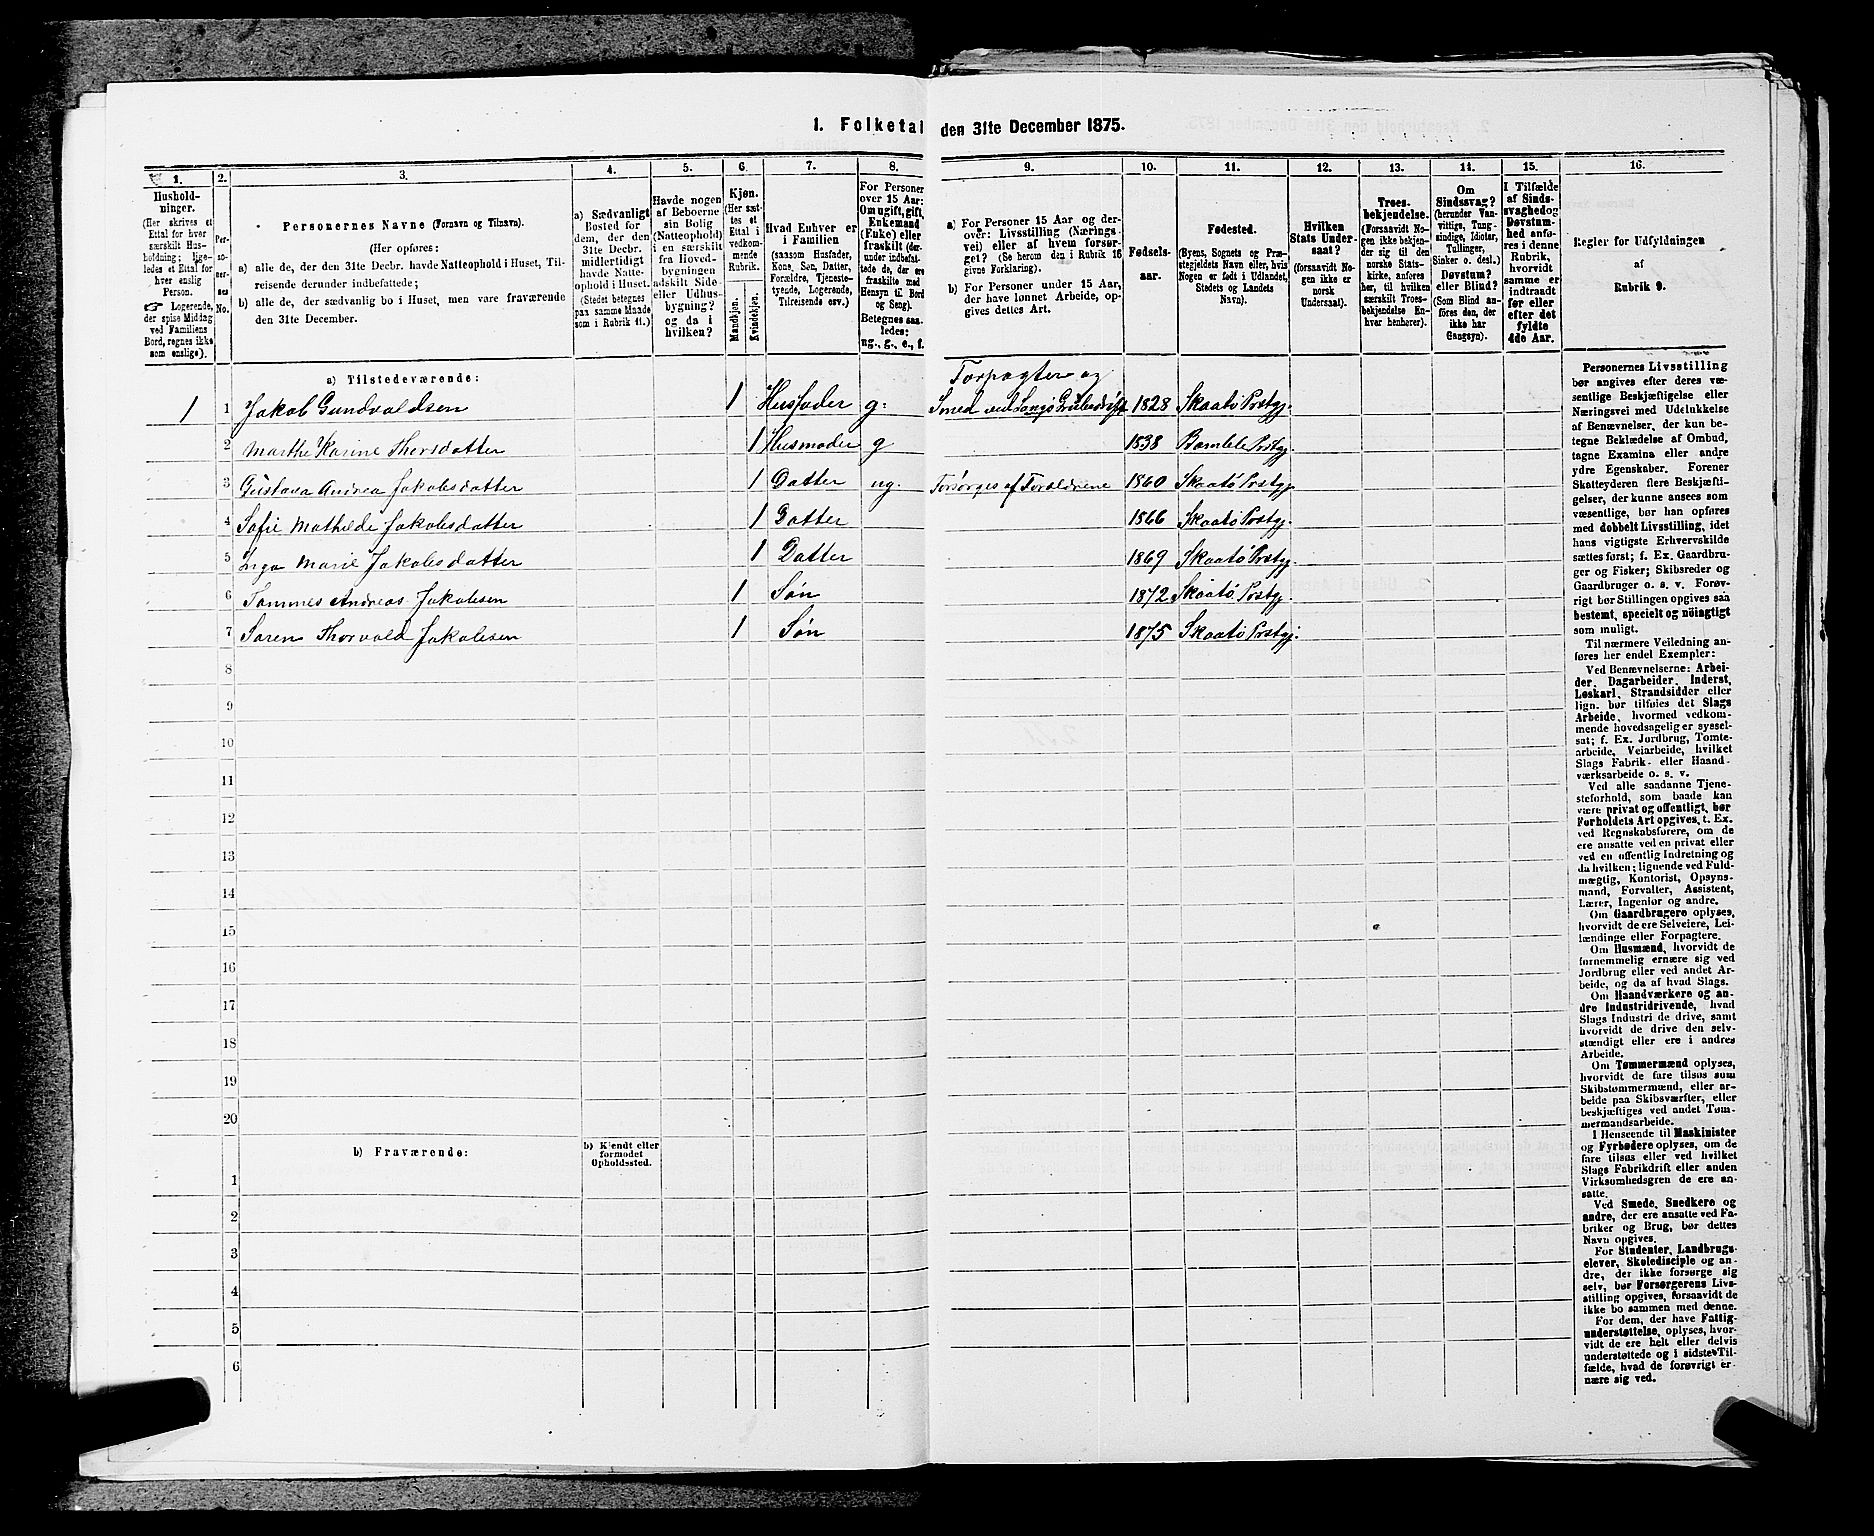 1. Folketal den 31te December 1875.
1.
Hushold-
ninger.
(Her skrives et
Ettal for hver
særskilt Hus-
holdning; lige-
ledes et Ettal for
hver enslig
Person.
☞ Logerende,
der spise Middag
ved Familiens
Bord, regnes ikke
som enslige).
2.
Per-
so-
ner-
nes
No.
3.
Personernes Navne (Fornavn og Tilnavn).
(Her opføres:
a) alle de, der den 31te Decbr. havde Natteophold i Huset, Til-
reisende derunder indbefattede;
b) alle de, der sædvanlig bo i Huset, men vare fraværende
den 31te December.
4.
a) Sædvanligt
Bosted for
dem, der den
31te Decbr.
midlertidigt
havde Natte-
ophold i Huset.
(Stedet betegnes
paa samme Maade
som i Rubrik 11.)
5.
Havde nogen
af Beboerne
sin Bolig
(Natteophold)
i en særskilt
fra Hoved-
bygningen
adskilt Side-
eller Udhus-
bygning?
og da i
hvilken?
6.
Kjøn.
(Her sæt-
tes et
Ettal i
vedkom-
mende
Rubrik.
Mandkjøn.
Kvindekjøn.
7.
Hvad Enhver er
i Familien
(saasom Husfader,
Kone, Søn, Datter,
Forældre, Tjeneste-
tyende, Logerende,
Tilreisende osv.)
8.
For Personer
over 15 Aar:
Om ugift, gift,
Enkemand
(Enke) eller
fraskilt (der-
under indbefat-
tede de, der ere
fraskilte med
Hensyn til Bord
og Seng).
Betegnes saa-
ledes:
ug., g., e., f.
9.
a) For Personer 15 Aar og der-
over: Livsstilling (Nærings-
vei) eller af hvem forsør-
get? (Se herom den i Rubrik 16
givne Forklaring).
b) For Personer under 15 Aar,
der have lønnet Arbeide, op-
gives dettes Art.
10.
Fødsels-
aar.
11.
Fødested.
(Byens, Sognets og Præ-
stegjeldets Navn eller, hvis
Nogen er født i Udlandet,
Stedets og Landets
Navn).
12.
Hvilken
Stats Under-
saat?
(forsaavidt No-
gen ikke er
norsk
Undersaat).
13.
Troes-
bekjendelse.
(Forsaavidt No-
gen ikke bekjen-
der sig til den
norske Stats-
kirke, anføres
her, til hvilken
særskilt Troes-
bekjendelse En-
hver henhører).
14.
Om
Sindssvag?
(herunder Van-
vittige, Tung-
sindige, Idioter,
Tullinger,
Sinker o. desl.)
Døvstum?
eller Blind?
(Som Blind an-
føres den, der
ikke har
Gangsyn).
15.
I Tilfælde
af Sinds-
svaghed og
Døvstum-
hed anfø-
res i denne
Rubrik,
hvorvidt
samme er
indtraadt
før eller
efter det
fyldte
4de Aar.
16.
Regler for Udfyldningen
af
Rubrik 9.
a) Tilstedeværende:
Forpagter og
1 1 Jakob Gundvaldsen 1 Husfader g: Smed ved Langø Grubedrift 1828 Skaatö Præstgj.
2 Marthe Karine Thorsdatter 1 Husmoder g 1838 Bamble Præstgj.
3 Gustava Andrea Jakobsdatter 1 Datter ug. Forsørges af Foræeldrene 1860 Skaatö Præstgj.
4 Sofie Mathilde Jakobsdatter 1 Datter 1866 Skaatö Præstgj.
5 Inga Marie Jakobsdatter 1 Datter 1869 Skaatö Præstgj.
6 Tommes Andreas Jakobsen 1 Søn 1872 Skaatö Præstgj.
7 Søren Thorvald Jakobsen 1 Søn 1875 Skaatö Præstgj.
8
9
10
11
12
13
14
15
16
17
18
19
20
b) Fraværende:
b) Kjendt eller
formodet
Opholdssted.
1
2
3
4
5
6
Personernes Livsstilling
bør angives efter deres væ-
sentlige Beskjæftigelse eller
Næringsvei med Udelukkelse
af Benævnelser, der kun be-
tegne Beklædelse af Ombud,
tagne Examina eller andre
ydre Egenskaber. Forener
Skatteyderen flere Beskjæfti-
gelser, der kunne ansees som
væsentlige, bør han opføres
med dobbelt Livsstilling, idet
hans vigtigste Erhvervskilde
sættes først; f. Ex. Gaardbru-
ger og Fisker; Skibsreder og
Gaardbruger o. s. v. Forøv-
rigt bør Stillingen opgives saa
bestemt, specielt og nöiagtigt
som muligt.
Til nærmere Veiledning an-
føres her endel Exempler:
Ved Benævnelserne: Arbei-
der, Dagarbeider, Inderst,
Løskarl, Strandsidder eller
lign. bør tilføies det Slags
Arbeide, hvormed vedkom-
mende hovedsagelig er syssel-
sat; f. Ex. Jordbrug, Tomte-
arbeide, Veiarbeide, hvilket
Slags Fabrik- eller Haand-
værksarbeide o. s. v.
Ved alle saadanne Tjene-
steforhold, som baade kan
være privat og offentligt, bør
Forholdets Art opgives, t. Ex.
ved Regnskabsførere, om de
ere ansatte ved en privat eller
ved en offentlig Indretning og
da hvilken; lignende ved Fuld-
mægtig, Kontorist, Opsyns-
mand, Forvalter, Assistent,
Lærer, Ingeniør og andre.
Om Gaardbrugere oplyses,
hvorvidt de ere Selveiere, Lei-
lændinge eller Forpagtere.
Om Husmænd, hvorvidt de
fornemmelig ernære sig ved
Jordbrug eller ved andet Ar-
beide, og da af hvad Slags.
Om Haandværkere og an-
dre Industridrivende, hvad
Slags Industri de drive, samt
hvorvidt de drive den selv-
stændigt eller ere i andres
Arbeide.
Om Tømmermænd oplyses,
hvorvidt de fare tilsøs som
Skibstømmermænd, eller ar-
beide paa Skibsværfter, eller
beskjæftiges ved andet Tøm-
mermandsarbeide.
I Henseende til Maskinister
og Fyrbødere oplyses, om de
fare tilsøs eller ved hvilket
Slags Fabrikdrift eller anden
Virksomhedsgren de ere an-
satte.
Ved Smede, Snedkere og
andre, der ere ansatte ved Fa-
briker og Brug, bør dettes
Navn opgives.
For Studenter, Landbrugs-
elever, Skoledisciple og an-
dre, der ikke forsørge sig
selv, bør Forsørgerens Livs-
stilling opgives, forsaavidt de
ikke bo sammen med denne.
For dem, der have Fattig-
understøttelse, oplyses, hvor-
vidt de ere helt eller delvis
understøttede og i sidste Til-
fælde, hvad de forøvrigt er-
nære sig ved.